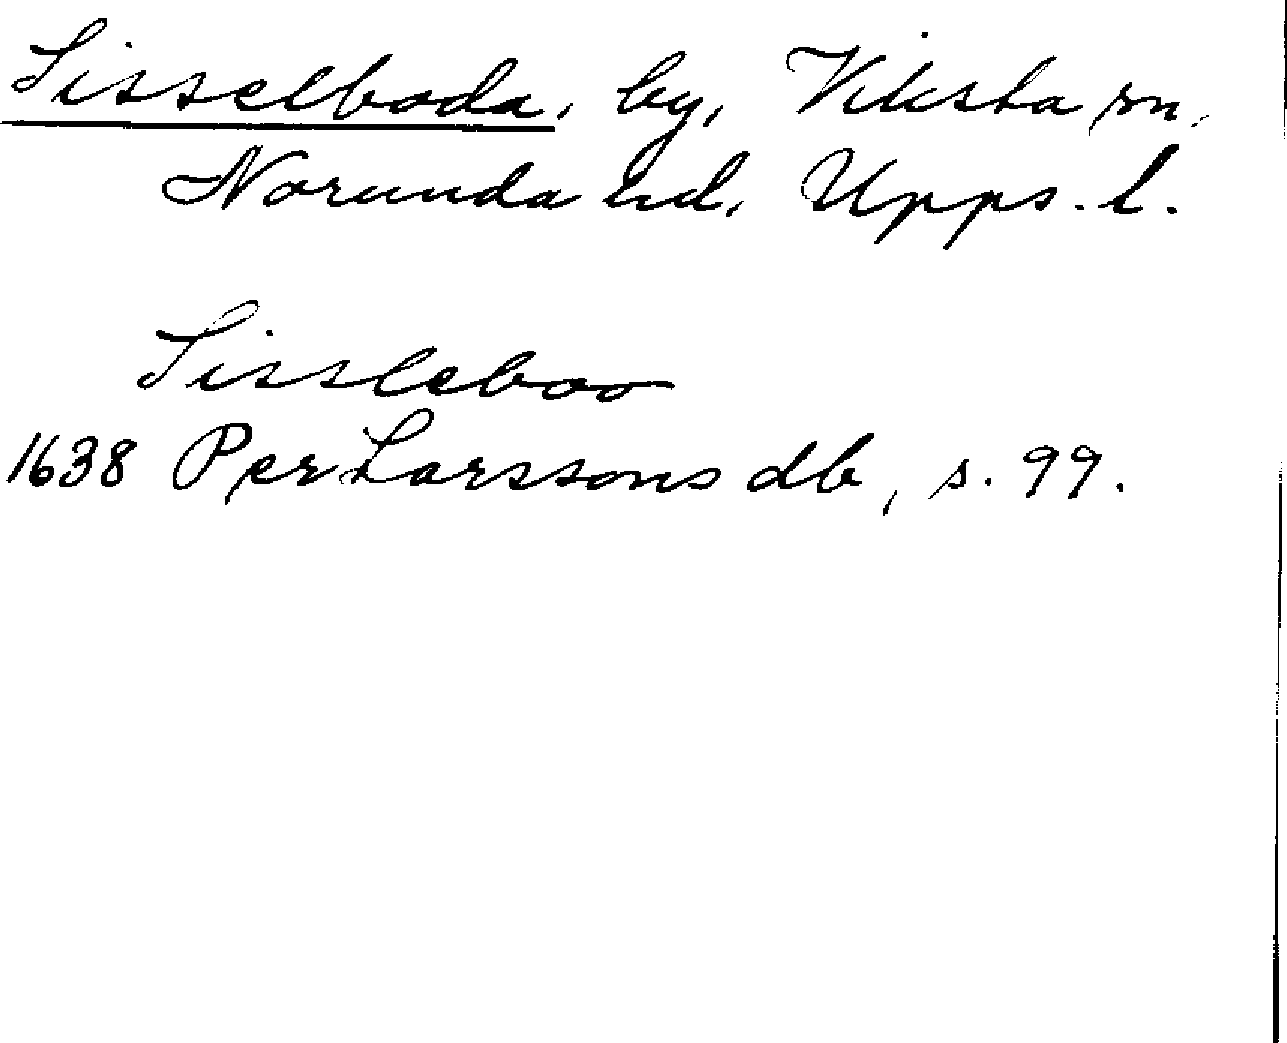 Sisselboda, by, Viksta sn,
Norunda hd, Upps. l.
Sissleboo
1638 Per Larssons db, s. 99.